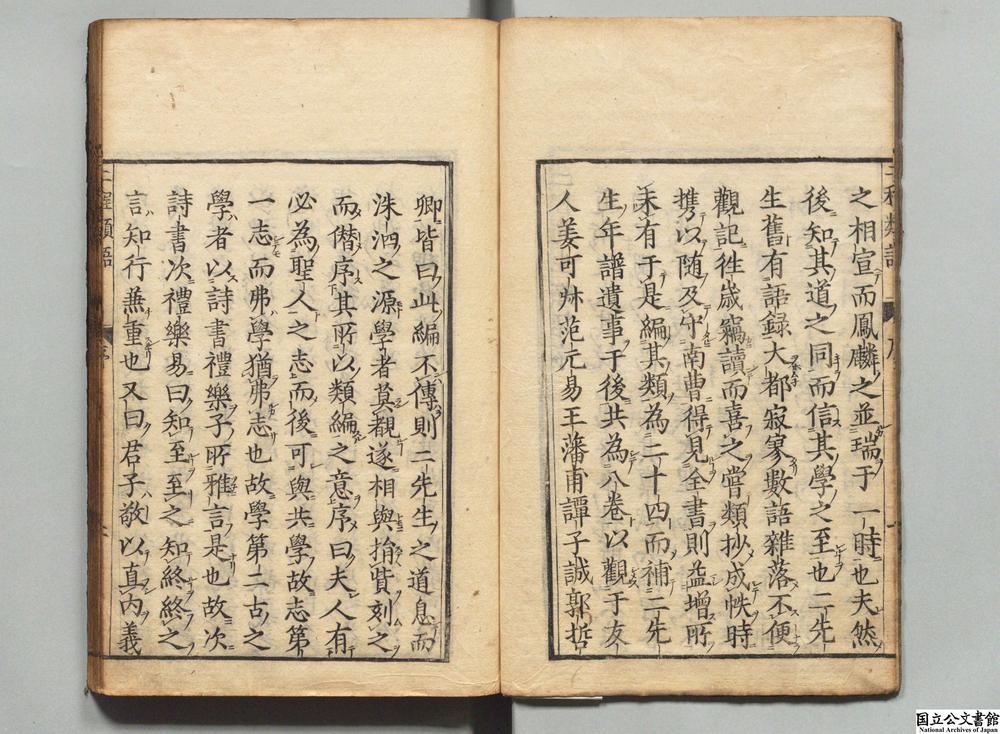 之相宣而鳳麟之並瑞于一時也夫然
後知其道之同而信其學之至也二先
生舊有語録大都寂寥數語雜落不便
觀記徃歳竊讀而喜之嘗類抄成帙時
携以随及守南曹得見全書則益增所
未有于是編其類為二十四而補二先
生年譜遺事于後共為八卷以觀于友
人姜可叔范元易王藩甫譚子誠郭哲
卿皆曰此編不傳則二先生之道息而
洙泗之源學者莫覩遂相與捐貲刻之
而僭序其所以類編之意序曰夫人有
必為聖人之志而後可與共學故志第
一志而弗學猶弗志也故學第二古之
學者以詩書禮樂子所雅言是也故次
詩書次禮樂易曰知至至之知終終之
言知行兼重也又曰君子敬以直内義
二程類語
序
国立公文書館
National Archives of Japan